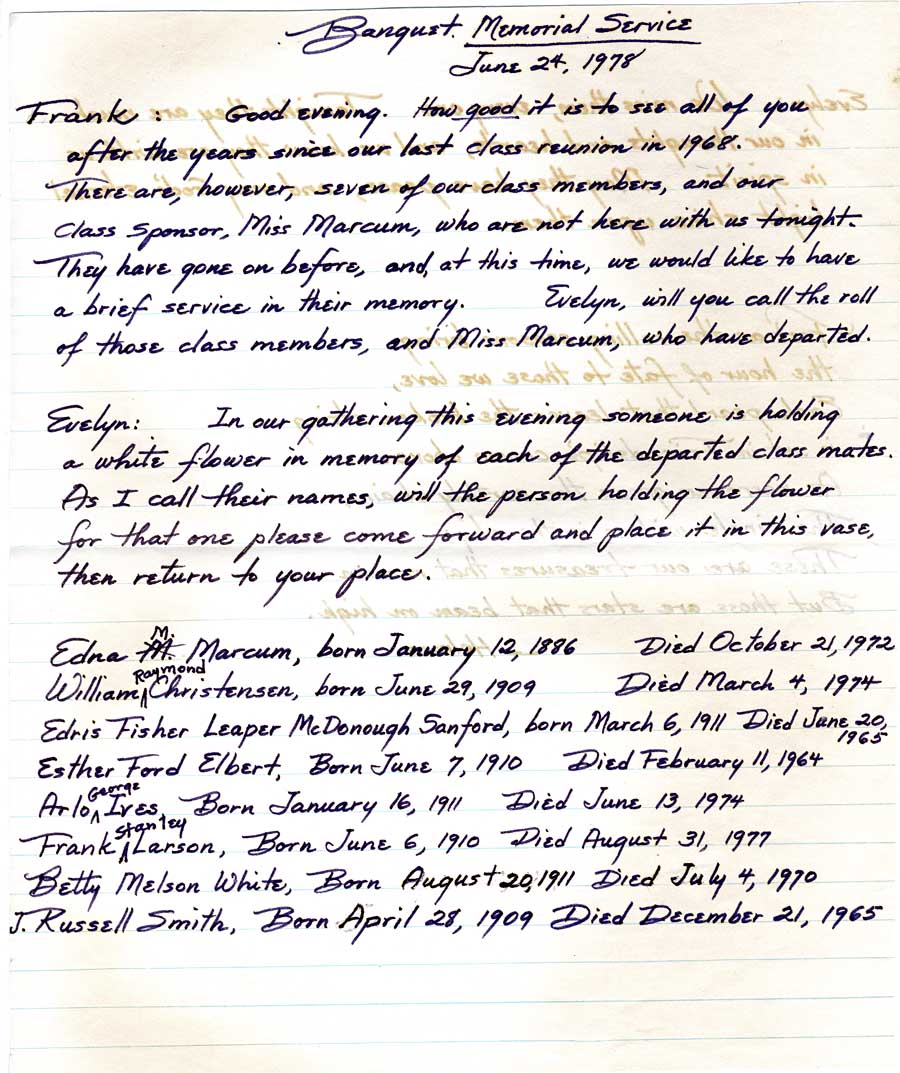 Banquet Memorial Service
June 24, 1978
Frank: Good evening. How good it is to see all of you
after the years since our last class reunion in 1968.
There are, however, seven of our class members, and our
Class Sponsor, Miss Marcum, who are not here with us tonight.
They have gone on before, and, at this time, we would like to have
a brief service in their memory. Evelyn, will you call the roll
of those class members, and Miss Marcum, who have departed.
Evelyn: In our gathering this evening someone is holding
a white flower in memory of each of the departed class mates.
As I call their names, will the person holding the flower
for that one please come forward and place it in this vase,
then return to your place.
Edna M. Marcum, born January 12, 1886 Died October 21, 1972
William Raymond Christensen, born June 29, 1909 Died March 4, 1974
Edris Fisher Leaper McDonough Sanford, born March 6, 1911 Died June 20, 1965
Esther Ford Elbert, Born June 7, 1910 Died February 11, 1964
Arlo George Ives, Born January 16, 1911 Died June 13, 1974
Frank Stanley Larson, Born June 6, 1910 Died August 31, 1977
Betty Melson White, Born August 20, 1911 Died July 4, 1970
J. Russell Smith, Born April 28, 1909 Died December 21, 1965